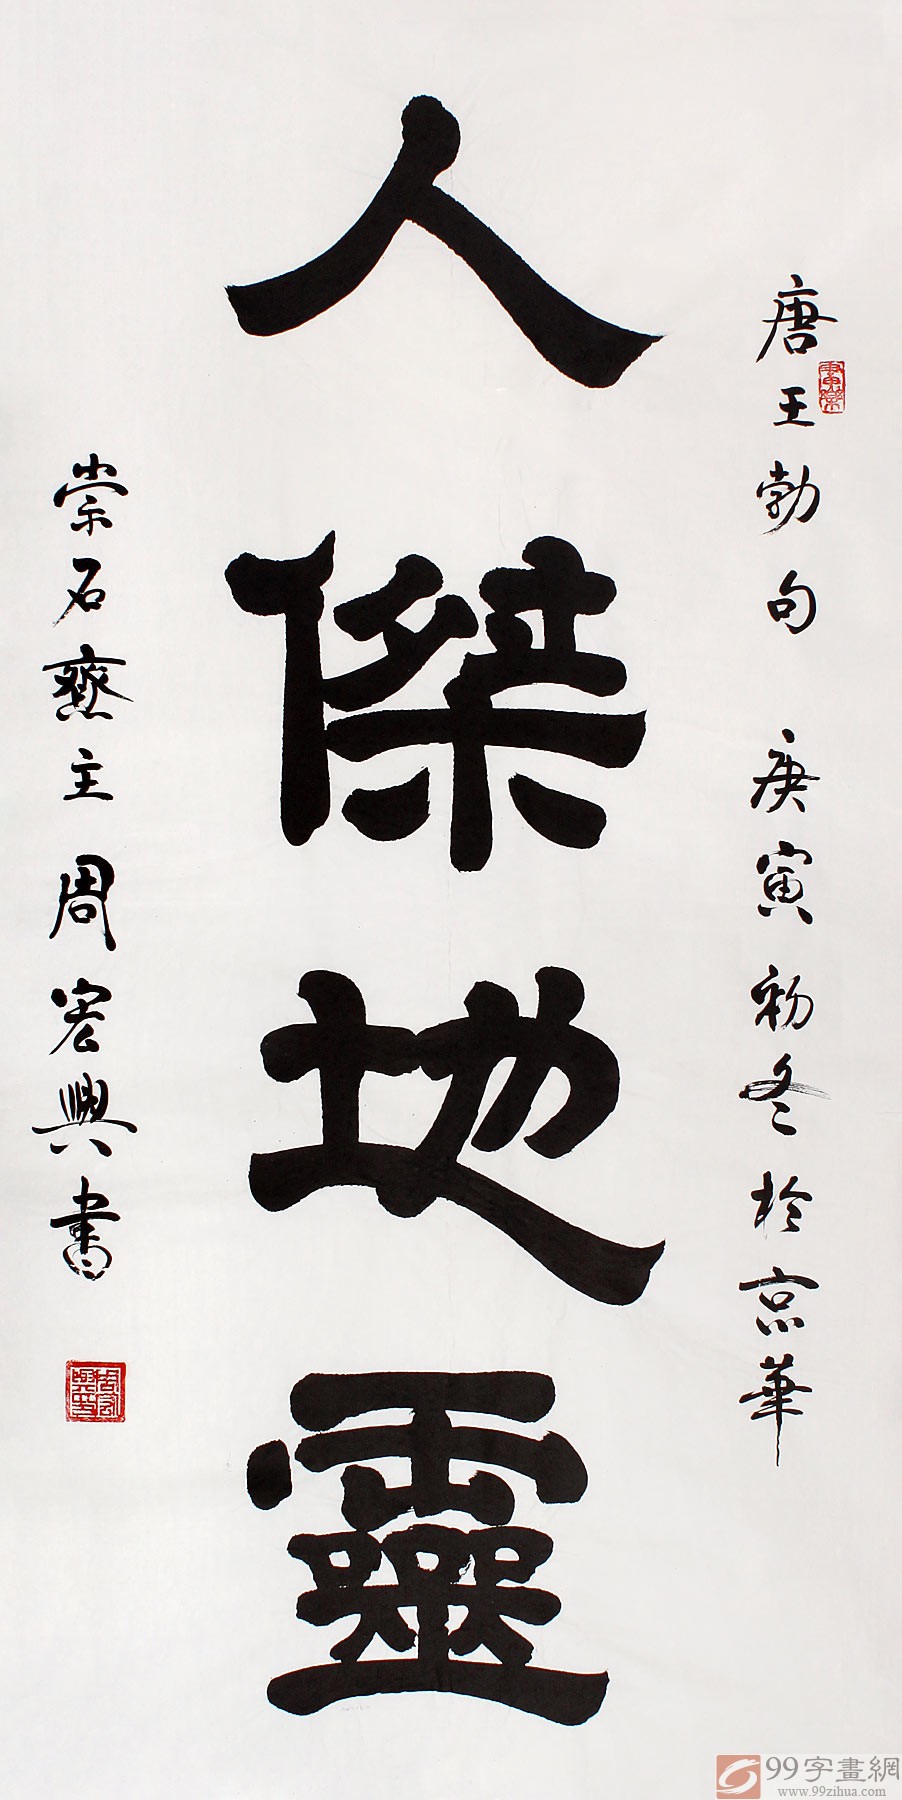 人傑地靈
唐王勃句 庚寅初冬於京華
崇石齋主周宏興書
99字畫網
www.99zihua.com